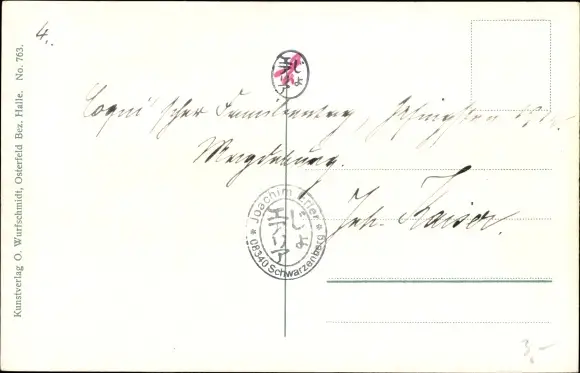 4.
Coqui'scher Familientag, Pfingsten
Magdeburg.
Joh. Kaiser.
Joachim Erler
* 08340 Schwarzenberg *
Kunstverlag O. Wurfschmidt, Osterfeld Bez. Halle. No. 763.
3,-